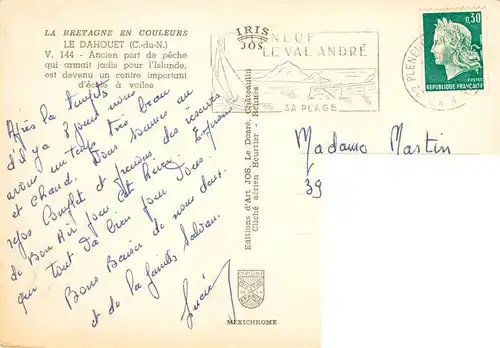 LA BRETAGNE EN COULEURS
LE DAHOUET (C.-du-N.)
V. 144 - Ancien port de pêche
qui armait jadis pour l'Islande,
est devenu un centre important
d'école à voiles
IRIS
JOS
NEUF
LE VAL ANDRÉ
SA PLAGE
0,30
POSTES
REPUBLIQUE FRANÇAISE
Après la
d'il y a 8 jours nous
avons un temps très beau
et chaud. Nous sommes au
repos complet et prenons des réserves
de Bon Air pour cet hiver. Espérons
que tout va bien pour vous.
Bons Baisers de nous deux
et de la famille
Lucie
Madame Martin
39
Editions d'Art JOS, Le Doaré, Châteaulin
Cliché aérien Heurtier - Rennes
MEXICHROME